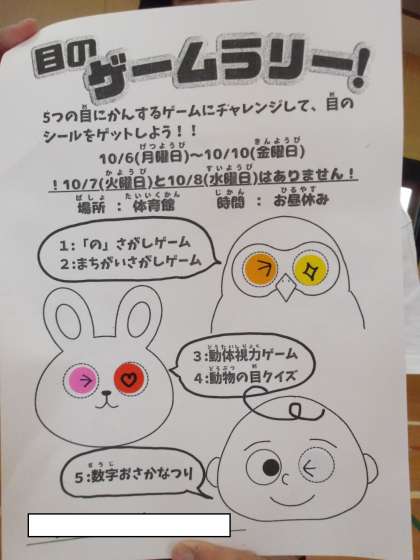 目のゲームラリー！
5つの目にかんするゲームにチャレンジして、目の
シールをゲットしよう！！
10/6(月曜日)～10/10(金曜日)
！10/7(火曜日)と10/8(水曜日)はありません！
場所 : 体育館 時間 : お昼休み
1:「の」さがしゲーム
2:まちがいさがしゲーム
3:動体視力ゲーム
4:動物の目クイズ
5:数字おさかなつり